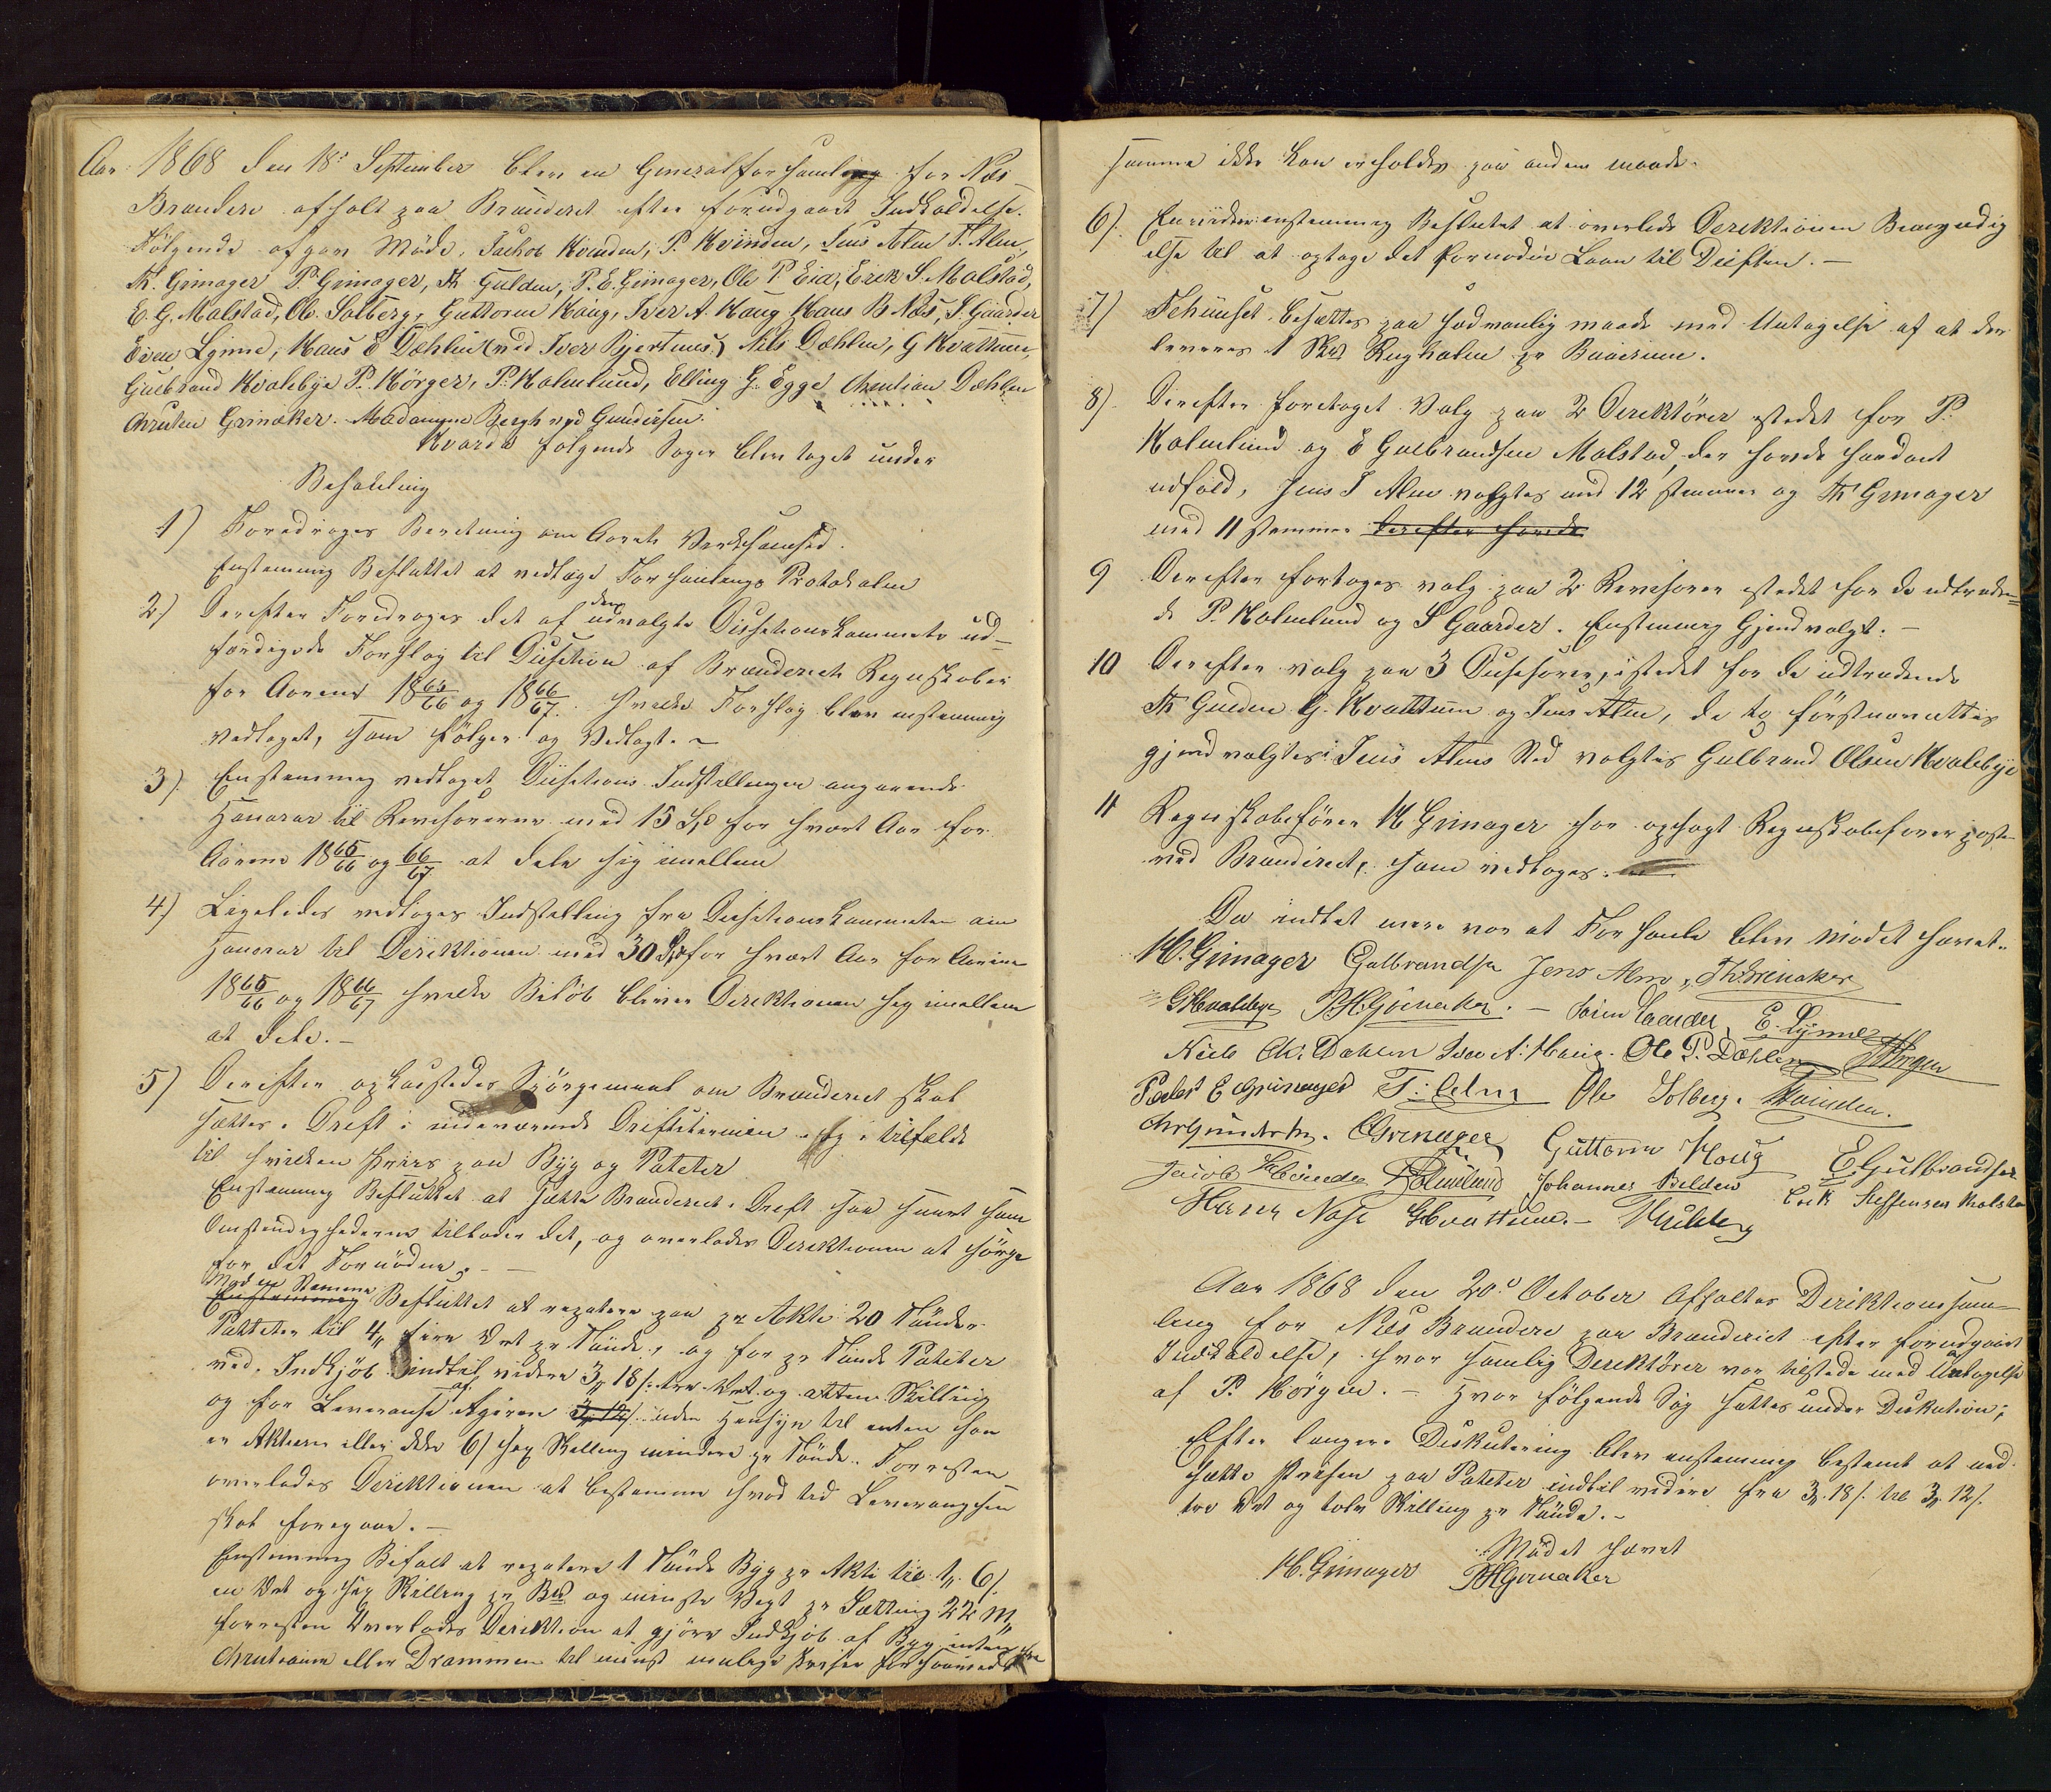 Aar 1868 den 18de September blev en Generalforsamling for Næs
Brænderi afholt paa Brænderiet efter forudgaaet Indkaldelse.
Følgende afgav Møde, Jachob Kvinden, P. Kvinden, Jens Alm T. Alm,
Th. Grinager P. Grinager, Th Gulden, P. E. Grinager, Ole P Eid, Erik S. Molstad,
E. G. Molstad, Ol. Solberg, Guttorm Haug, Iver A. Haug Hans B Næs, S. Gaarder
Even Lynne, Hans E Dæhlin (ved Iver Bjertnes) Nils Dæhlen, G Kvattum,
Gulbrand Hvalebye P. Hörgen, P. Holmlund, Elling G. Egge Christian Dæhlen
Christen Grinaker. Madamme Bergh ved Gundersen.
Hvorda følgende Sager blev taget under
Behandling
1) Foredroges Beretning om Aarets Verksamhed.
Enstemmig Besluttet at vedlægge Forhandlings Protokolen
2) Derefter Foredroges det af den udvalgte Disitionskommite ud-
færdigede Forslag til Disition af Brænderiets Regnskaber
for Aarene 1865/66 og 1866/67. hvilke Forslag blev enstemmig
vedtaget, som følger og Vedlagt. -
3) Enstemmig vedtaget Disitions Indstillingen angaaende
Honorar til Revisorerne med 15 Spd for hvert Aar for
Aarene 1865/66 og 66/67 at dele sig imellem
4) Ligeledes vedtoges Indstilling fra Disitionskommiteen om
Honorar til Direktionen med 30 Spd for hvert Aar for Aarene
1865/66 og 1866/67 hvilke Beløb bliver Direktionen sig imellem
at dele. -
5) Derefter opkastedes Spörgsmaal om Brænderiet skal
sættes i Drift i indeværende Driftstermin og i tilfælde
til hvilken Priis paa Byg og Poteter
Enstemmig Besluttet at sætte Brænderiet i Drift saa snart som
Omstendighederne tillader det, og overlades Direktionen at sörge
for det Fornödne. -
Mod en Stemme
Enstemmig Besluttet at repatere paa pr Aktie 20 Tönder
Poteter til 4 fire Ort pr Tönde, og for pr Tönde Poteter
ved Indkjöb indtil videre 3 18/ tre Ort og atten Skilling
og for Leveranse af Agieren 3 12/ uden Hensyn til enten han
er Aktieeier eller ikke 6/ sex Skilling mindere pr Tönde. Forresten
overlades Direktionen at bestemme hvad tid Leverangsen
skal foregaae. -
Enstemmig Bifalt at repatere 1 Tönde Byg pr Aktie til 1 6/
en Ort og sex Skilling pr Bpd og mindste Vegt pr Sætting 22 M
forresten Overlades Direktion at gjöre Indkjöb af Byg enten fra
Christiania eller Drammen til minst mulige Priser forsaavidt
samme ikke kan erholdes paa anden maade.
6) Envidere enstemmig Besluttet at overlade Direktionen Bemyndig
else til at optage det fornødne Laan til Driften. -
7) Fehuuset besættes paa sædvanlig maade med Untagelse af at der
leveres 1 Skpd Rughalm pr
8) Derefter foretaget Valg paa 2 Direktörer istedet for P.
Holmlund og E Gulbrandsen Molstad, der havde
udfald, Jens T Alm valgtes med 12 stemmer og Th Grinager
med 11 stemmer derefter havde
9 Derefter fortoges valg paa 2 Revisorer istedet for de udtræden=
de P. Holmlund og S Gaarder. Enstemmig Gjendvalgt. -
10 Derefter valg paa 3 istedet for de udtrædende
Th Gulden G. Kvattum og Jens Alm, de to förstnævntes
gjendvalgtes i Jens Alms Sted valgtes Gulbrand Olsen Hvalebye
11 Regnskabsfører H Grinager har opsagt Regnskabsførerposten
ved Brænderiet, som vedtoges.
Da indtet mere var at Forhandle blev Mødet hævet.
H. Grinager Gulbrandsen Jens Alm, Th. Grinaker
G Hvalebye P H Grinaker. - Sören Gaarder, E. Lynne
Niels Chr: Dæhlen Iver A. Haug. Ole P. Dæhlen P Hörgen
Peder E Grinager T: Alm Ole Solberg. P Kvinden.
Chr Gundersen. C Grinager Guttorm Houg E. Gulbrandsen
Jacob Kvinden P Holmlund Johannes Belden Erik Steffensen Molstad
Hans Næss G Kvattum. -
Aar 1868 den 20de October Afholtes Direktionssam-
ling for Næs Brænderi paa Brænderiet efter forudgaaet
Indkaldelse, hvor samtlig Direktörer var tilstede med Untagelse
af P. Hörgen. - Hvor følgende Sag sattes under Diskution;
Efter længere Diskutering blev enstemmig bestemt at ned-
sætte Prisen paa Poteter indtil videre fra 3 18/. til 3 12/.
tre Ort og tolv Skilling pr Tönde. -
Mødet hævet
H. Grinager P H Grinaker